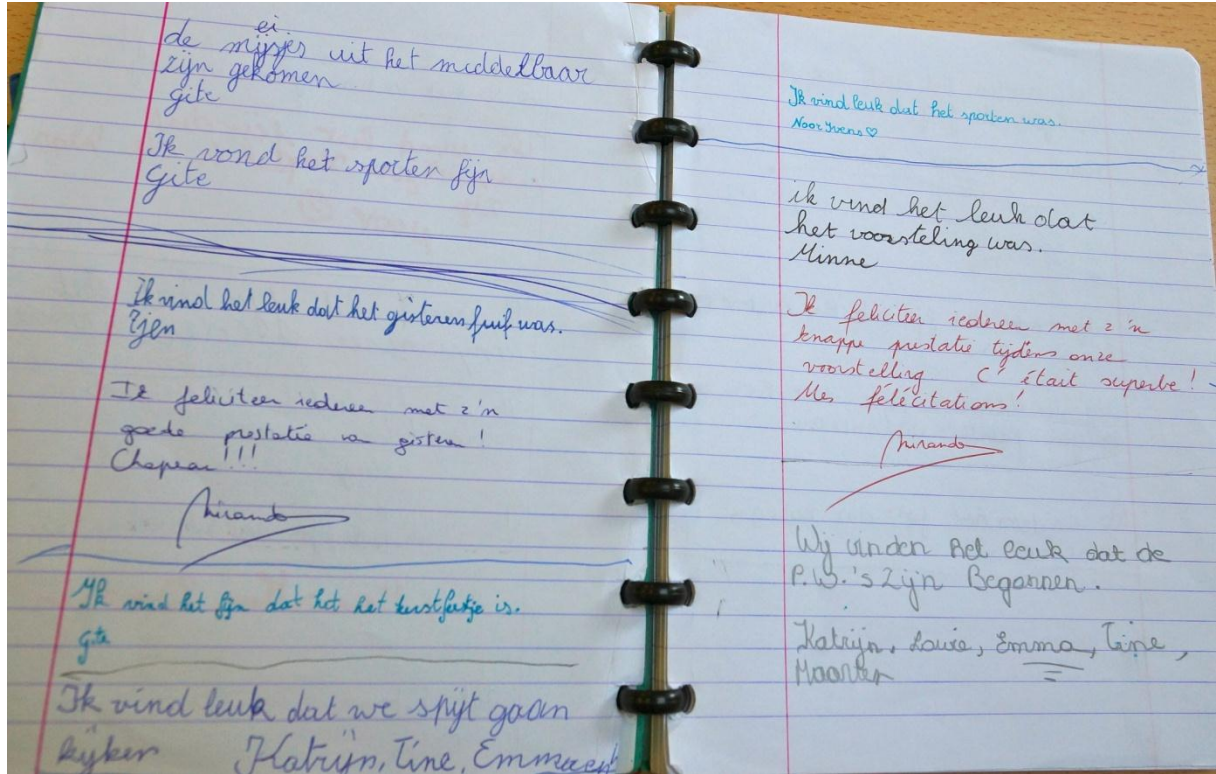 ei
de mijsjes uit het middelbaar
zijn gekomen
Gite
Ik vond het sporten fijn
Gite
Ik vind het leuk dat het gisteren fuif was.
Ik feliciteer iedereen met z'n
goede prestatie van gisteren!
Chapeau!!!
Miranda
Ik vind het fijn dat het het kerstfeetje is.
Gite
Ik vind leuk dat we spijt gaan
kijken Katrijn, Tine, Emma
Ik vind leuk dat het sporten was.
Noor Yvens ♡
ik vind het leuk dat
het voorsteling was.
Minne
Ik feliciteer iedereen met z'n
knappe prestatie tijdens onze
voorstelling C'était superbe!
Mes félécitations!
Miranda
Wij vinden het leuk dat de
P.W.'s zijn Begonnen.
Katrijn, Louie, Emma, Tine,
Maarten